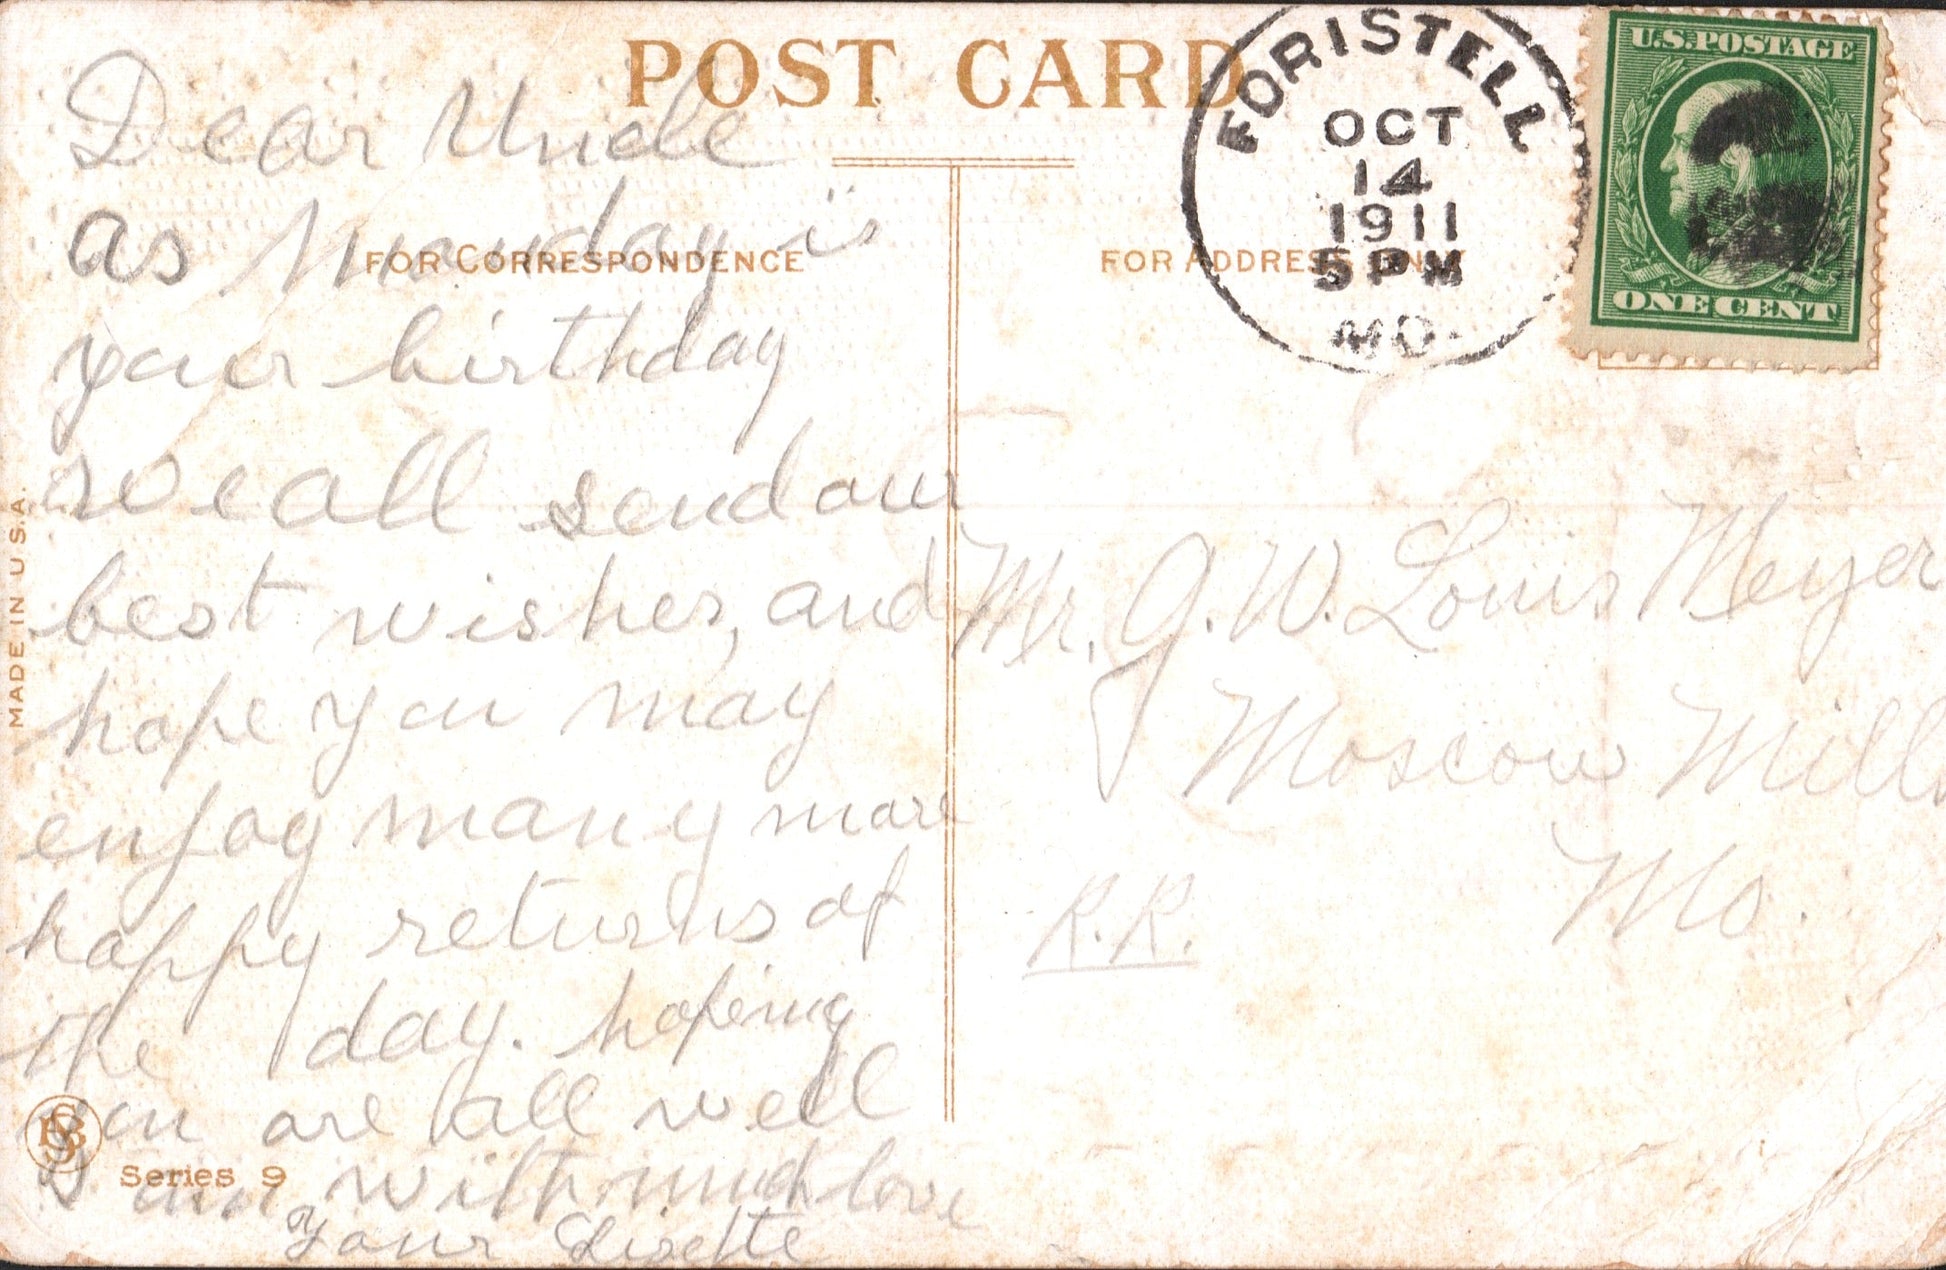 POST CARD
FORISTELL
OCT
14
1911
5 PM
MO.
U.S. POSTAGE
ONE CENT
FOR CORRESPONDENCE
FOR ADDRESS ONLY
MADE IN U.S.A.
Dear Uncle
as Monday is
your birthday
we all send our
best wishes, and
hope you may
enjoy many more
happy returns of
the day. hoping
you are all well
I am with much love
Your Lisette
Series 9
Mr. G. W. Louis Meyer
Moscow Mills
Mo.
R.R.